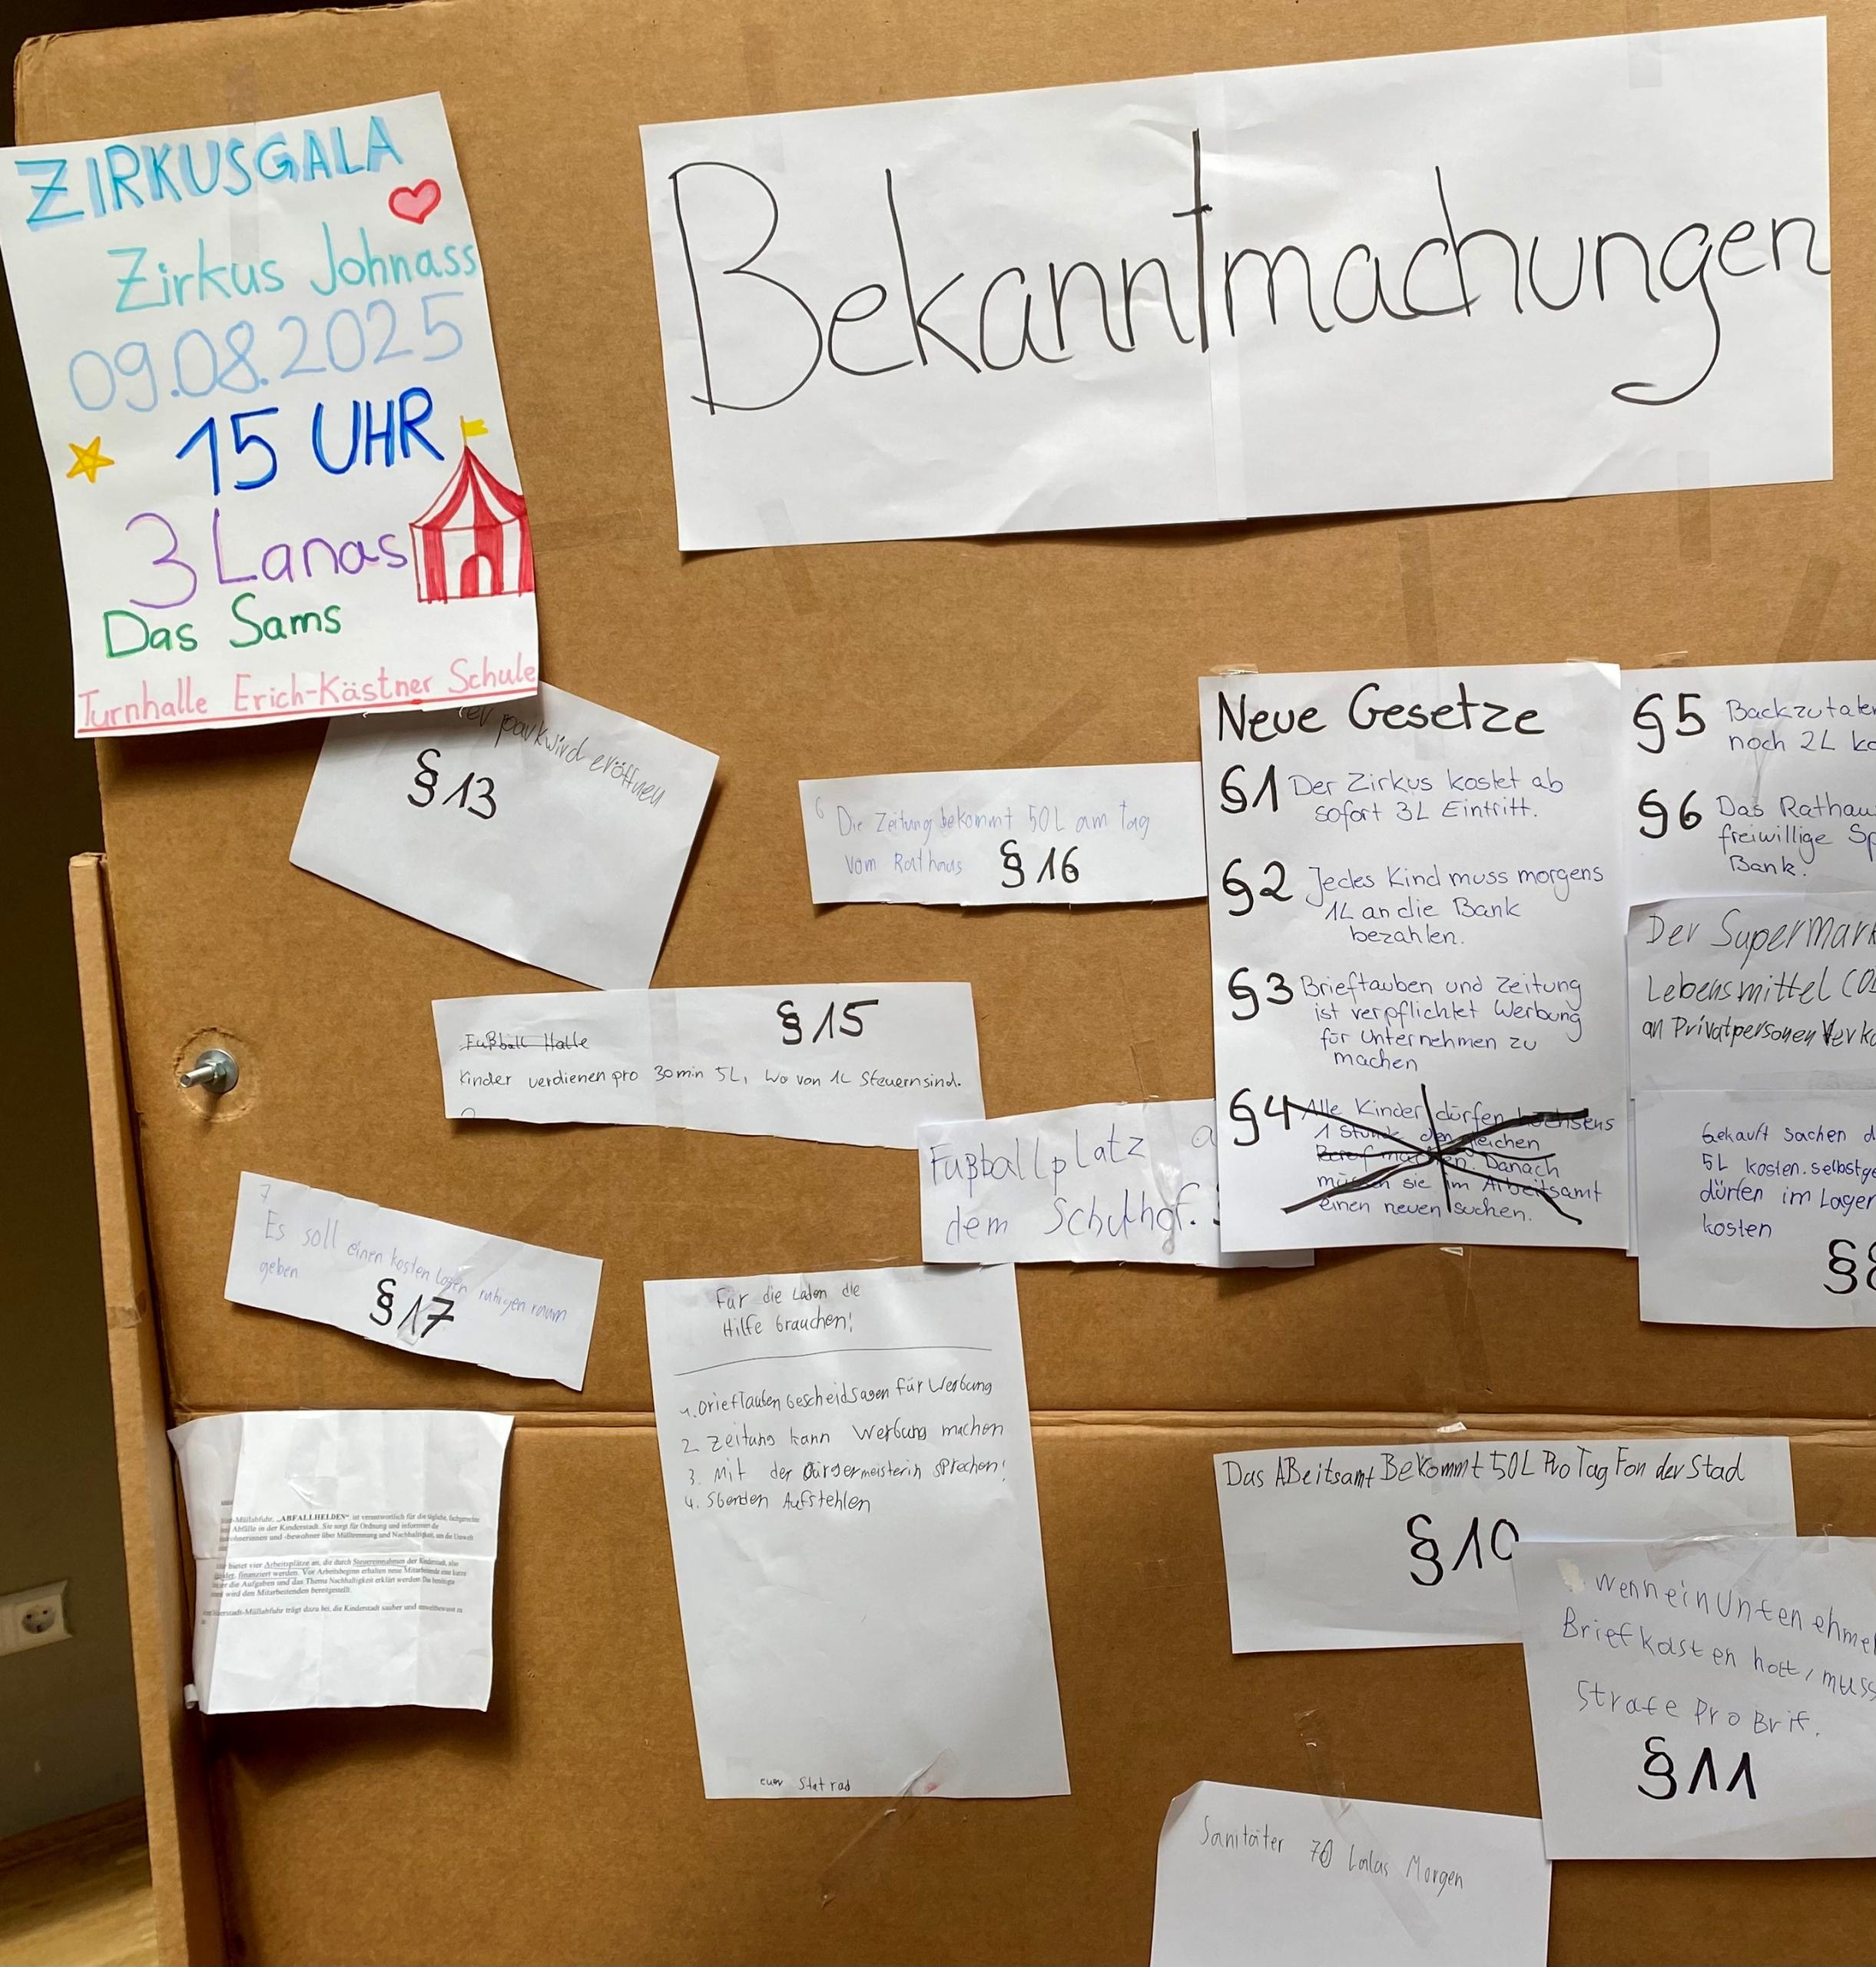 ZIRKUSGALA
Zirkus Johnass
09.08.2025
15 UHR
3 Lanas
Das Sams
Turnhalle Erich-Kästner Schule
Bekanntmachungen
park wird eröffnen
§ 13
6 Die Zeitung bekommt 50L am tag
vom Rathaus § 16
Neue Gesetze
§1 Der Zirkus kostet ab
sofort 3L Eintritt.
§2 Jedes Kind muss morgens
1L an die Bank
bezahlen.
§3 Brieftauben und Zeitung
ist verpflichtet Werbung
für Unternehmen zu
machen
§4 Alle Kinder dürfen höchsens
1 Stunde den gleichen
Beruf machen. Danach
müssen sie im Arbeitsamt
einen neuen suchen.
§5 Backzutaten
noch 2L
§6 Das Rathau
freiwillige Sp
Bank.
Der SuperMark
Lebensmittel
an Privatpersonen
Gekauft sachen d
5L kosten. selbstge
dürfen im Lager
kosten
§8
§ 15
Fußball Halle
Kinder verdienen pro 30min 5L, wo von 1L Steuern sind.
Fußballplatz a
dem Schulhof.
7
Es soll einen kosten losen ruhigen raum
geben
§ 17
Für die Laden die
Hilfe brauchen!
1. Brieftauben bescheidsagen für Werbung
2. Zeitung kann Werbung machen
3. Mit der Bürgermeisterin sprechen!
4. Sbenden Aufstehlen
euer Statrad
Müllabfuhr, „ABFALLHELDEN“ ist verantwortlich für die tägliche, fachgerechte
Abfälle in der Kinderstadt. Sie sorgt für Ordnung und informiert die
und -bewohner über Mülltrennung und Nachhaltigkeit, um die Umwelt
bietet vier Arbeitsplätze an, die durch Steuereinnahmen der Kinderstadt, also
finanziert werden. Vor Arbeitsbeginn erhalten neue Mitarbeitende eine kurze
der die Aufgaben und das Thema Nachhaltigkeit erklärt werden. Die benötigte
wird den Mitarbeitenden bereitgestellt.
Müllabfuhr trägt dazu bei, die Kinderstadt sauber und umweltbewusst zu
Das ABeitsamt Bekommt 50L Pro Tag Fon der Stad
§10
wenn ein Unten ehmer
Briefkasten hatt, muss
Strafe Pro Brif.
§11
Sanitäter 70 Lalas Morgen